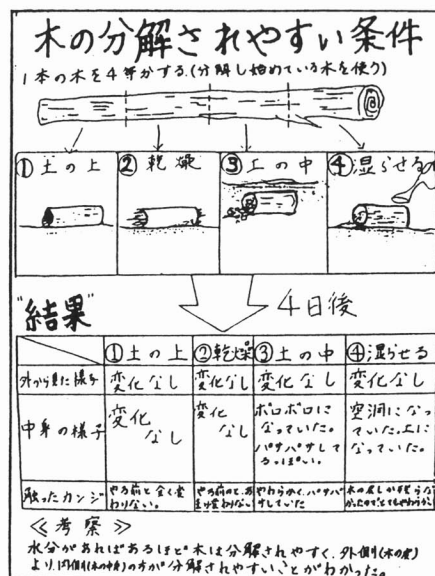 木の分解されやすい条件
1本の木を4等分する.(分解し始めている木を使う)
①土の上
②乾燥
③土の中
④湿らせる
"結果"
4日後
①土の上 ②乾燥 ③土の中 ④湿らせる
外から見た様子 変化なし 変化なし 変化なし 変化なし
中身の様子 変化なし 変化なし ボロボロになっていた。パサパサしてるっぽい。 空洞になっていた。土になっていた。
触ったカンジ やる前と全く変わりない。 やる前のと、あまり変わりない やわらかく、パサパサしていた
≪考察≫
水分があればあるほど木は分解されやすく、外側(木の皮)
より、内側(木の中身)の方が分解されやすいことがわかった。